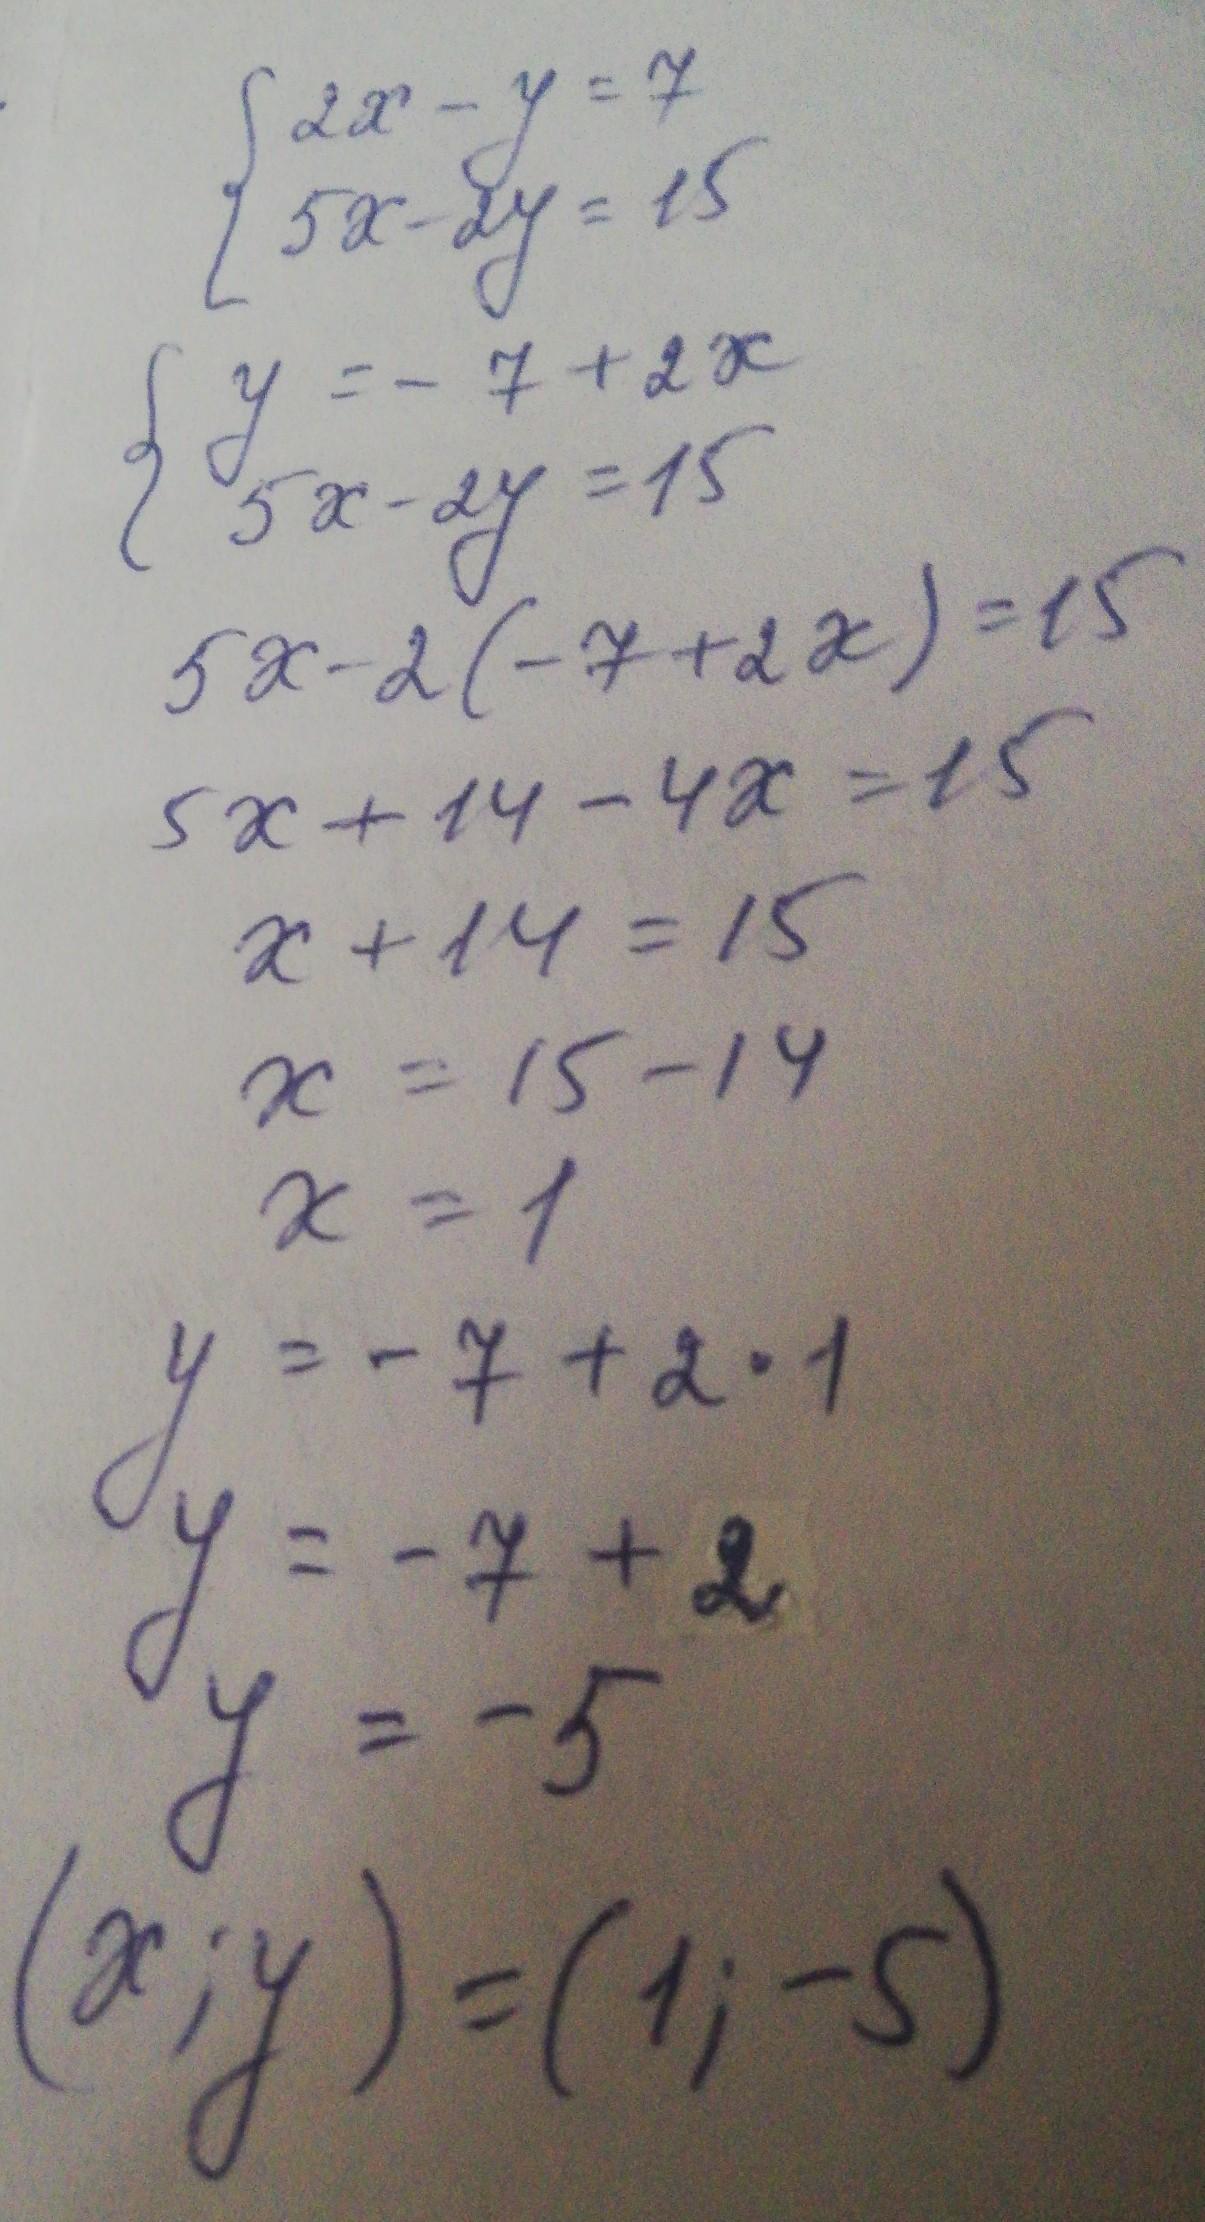 2x - y = 7
5x - 2y = 15
y = - 7 + 2x
5x - 2y = 15
5x - 2(-7 + 2x) = 15
5x + 14 - 4x = 15
x + 14 = 15
x = 15 - 14
x = 1
y = - 7 + 2 · 1
y = - 7 + 2
y = - 5
(x; y) = (1; -5)